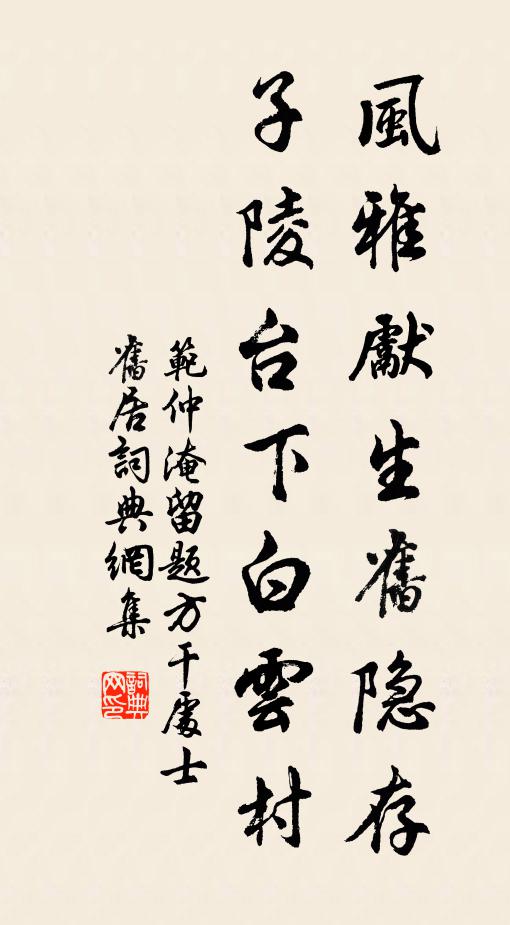 風雅獻生舊隐存
子陵台下白雲村
範仲淹留题方干處士
舊居詞典網集
詞典网印